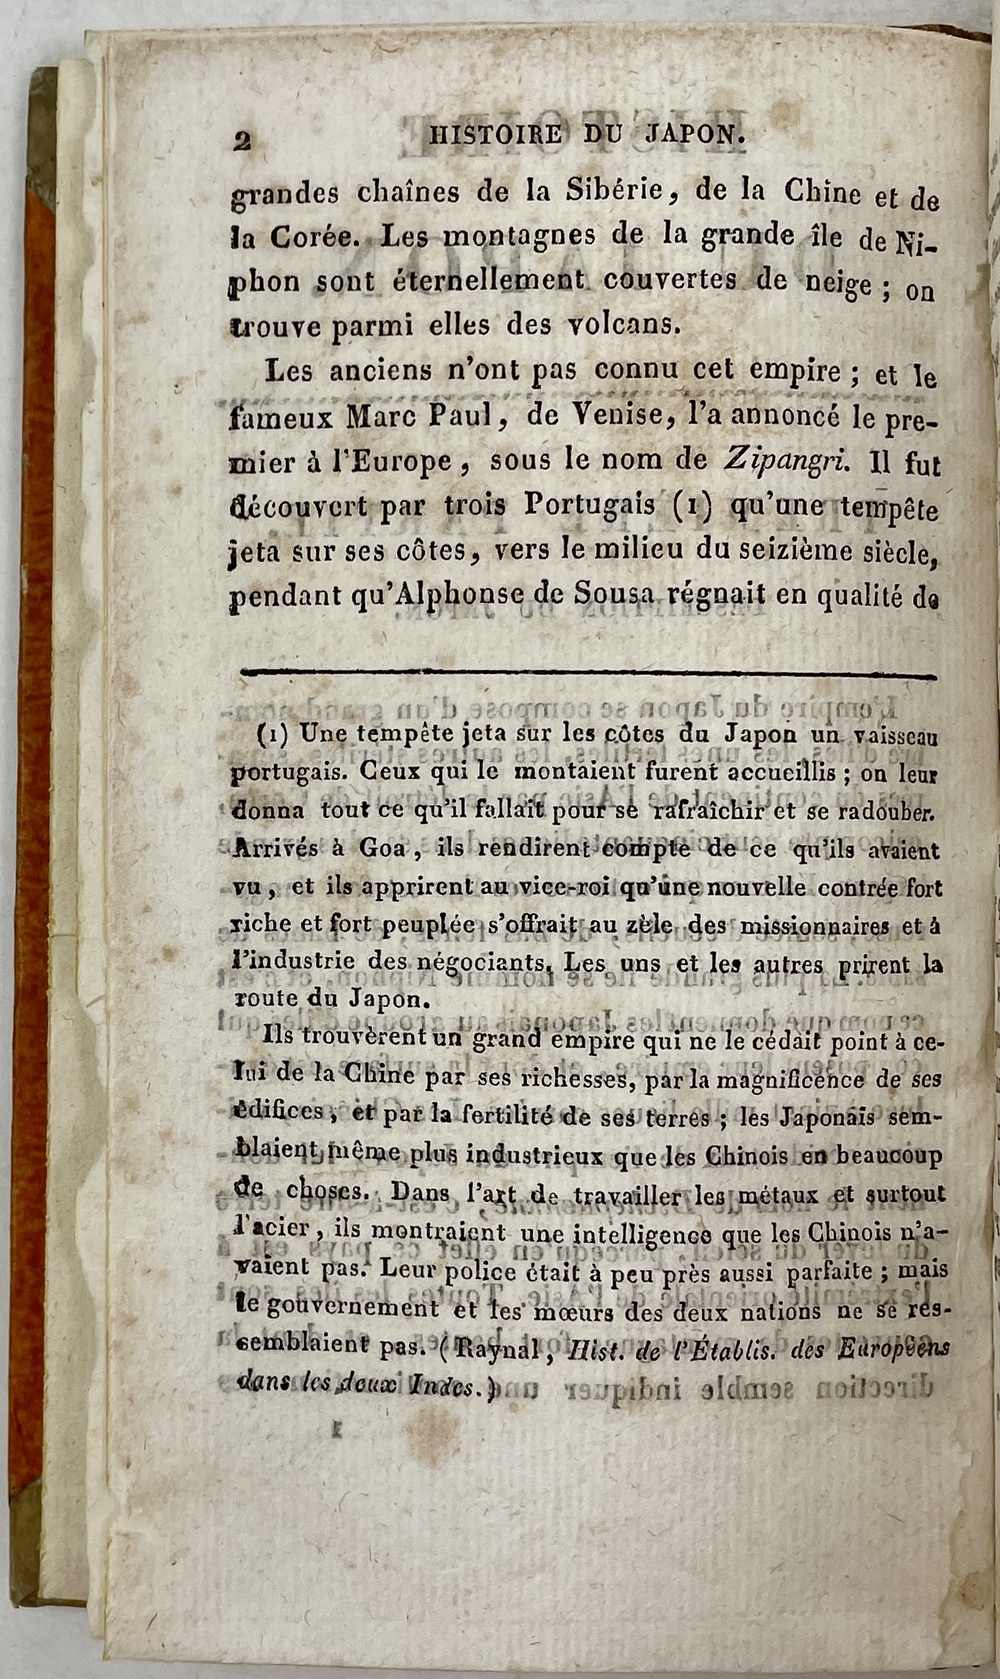 2 HISTOIRE DU JAPON.
grandes chaînes de la Sibérie, de la Chine et de
la Corée. Les montagnes de la grande île de Ni-
phon sont éternellement couvertes de neige ; on
trouve parmi elles des volcans.
Les anciens n'ont pas connu cet empire ; et le
fameux Marc Paul, de Venise, l'a annoncé le pre-
mier à l'Europe, sous le nom de Zipangri. Il fut
découvert par trois Portugais (1) qu'une tempête
jeta sur ses côtes, vers le milieu du seizième siècle,
pendant qu'Alphonse de Sousa régnait en qualité de
(1) Une tempête jeta sur les côtes du Japon un vaisseau
portugais. Ceux qui le montaient furent accueillis ; on leur
donna tout ce qu'il fallait pour se rafraîchir et se radouber.
Arrivés à Goa, ils rendirent compte de ce qu'ils avaient
vu, et ils apprirent au vice-roi qu'une nouvelle contrée fort
riche et fort peuplée s'offrait au zèle des missionnaires et à
l'industrie des négociants. Les uns et les autres prirent la
route du Japon.
Ils trouvèrent un grand empire qui ne le cédait point à ce-
lui de la Chine par ses richesses, par la magnificence de ses
édifices, et par la fertilité de ses terres ; les Japonais sem-
blaient même plus industrieux que les Chinois en beaucoup
de choses. Dans l'art de travailler les métaux et surtout
l'acier, ils montraient une intelligence que les Chinois n'a-
vaient pas. Leur police était à peu près aussi parfaite ; mais
le gouvernement et les mœurs des deux nations ne se res-
semblaient pas. (Raynal, Hist. de l'Établis. des Européens
dans les deux Indes.)